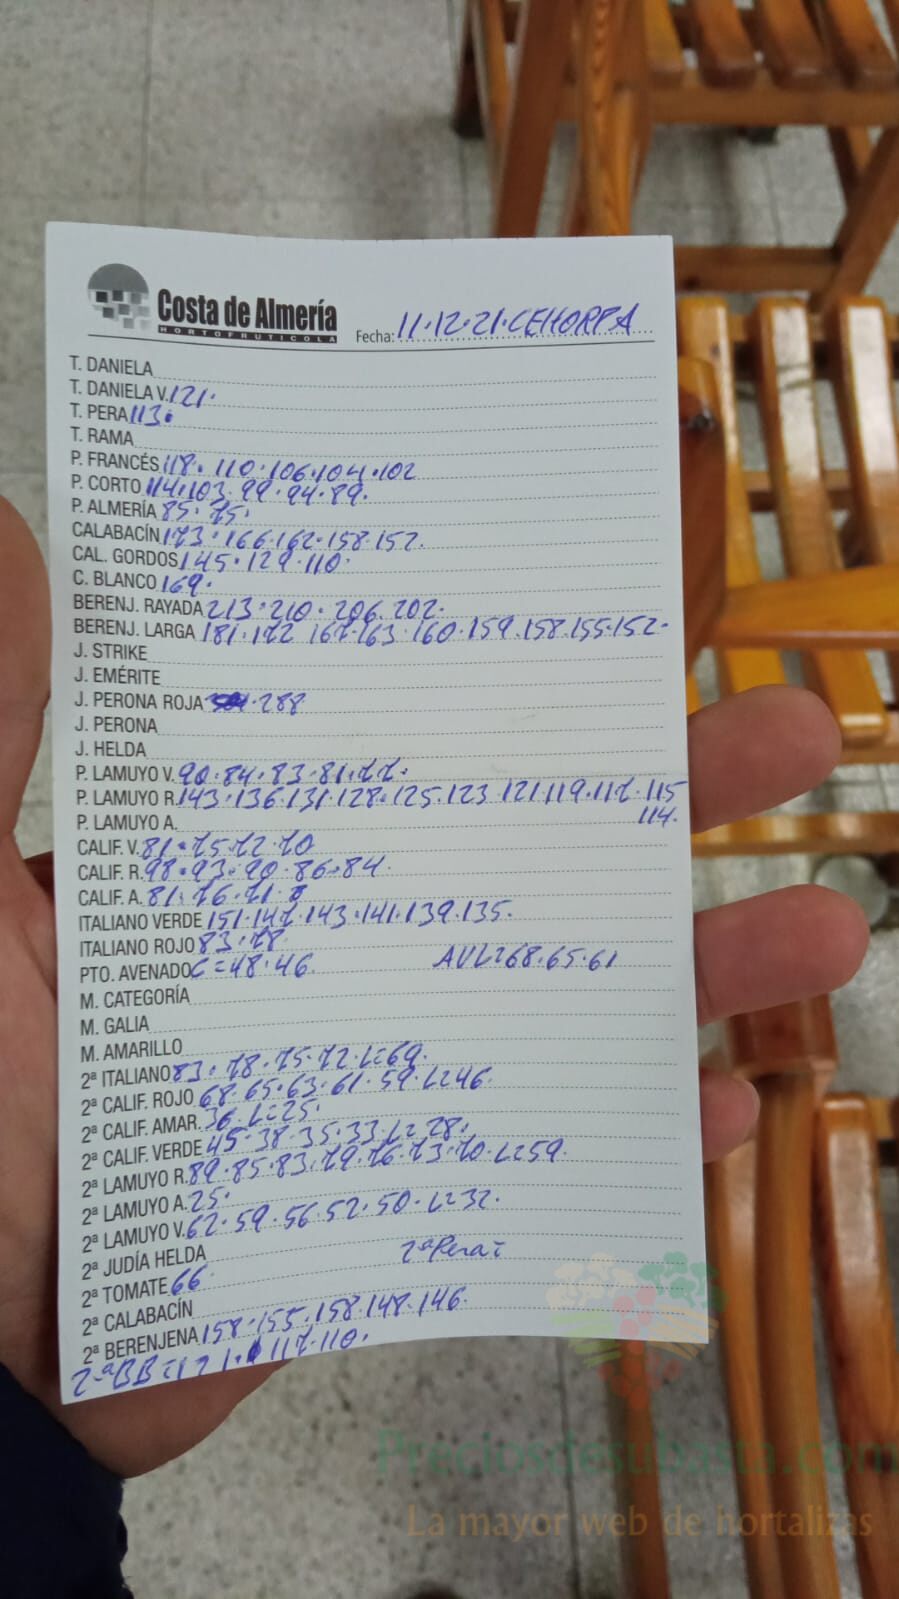 Costa de Almería
HORTOFRUTICOLA
Fecha: 11·12·21·CEHORPA
T. DANIELA
T. DANIELA V. 121·
T. PERA 113·
T. RAMA
P. FRANCÉS 118· 110·106·104·102
P. CORTO 114·103·99·94·89·
P. ALMERÍA 85·75·
CALABACÍN 173·166·162·158·152·
CAL. GORDOS 145·129·110·
C. BLANCO 169·
BERENJ. RAYADA 213·210·206·202·
BERENJ. LARGA 181·172 167·163·160·159·158·155·152·
J. STRIKE
J. EMÉRITE
J. PERONA ROJA ·288
J. PERONA
J. HELDA
P. LAMUYO V. 90·84·83·81·77·
P. LAMUYO R. 143·136·131·128·125·123 121·119·117·115
114·
P. LAMUYO A.
CALIF. V. 81·75·72·70
CALIF. R. 98·93·90·86·84·
CALIF. A. 81·76·71·
ITALIANO VERDE 151·147·143·141·139·135·
ITALIANO ROJO 83·78·
PTO. AVENADO C=48·46· AVL=68·65·61
M. CATEGORÍA
M. GALIA
M. AMARILLO
2ª ITALIANO 83·78·75·72·L=69·
2ª CALIF. ROJO 68·65·63·61·59·L=46·
2ª CALIF. AMAR. 36·L=25·
2ª CALIF. VERDE 45·38·35·33·L=28·
2ª LAMUYO R. 89·85·83·79·76·73·70·L=59·
2ª LAMUYO A. 25·
2ª LAMUYO V. 62·59·56·52·50·L=32·
2ª JUDÍA HELDA 2ªPera=
2ª TOMATE 66
2ª CALABACÍN
2ª BERENJENA 158·155·158·148·146·
2ªBB=121· 117·110·
Preciosdesubasta.com
La mayor web de hortalizas